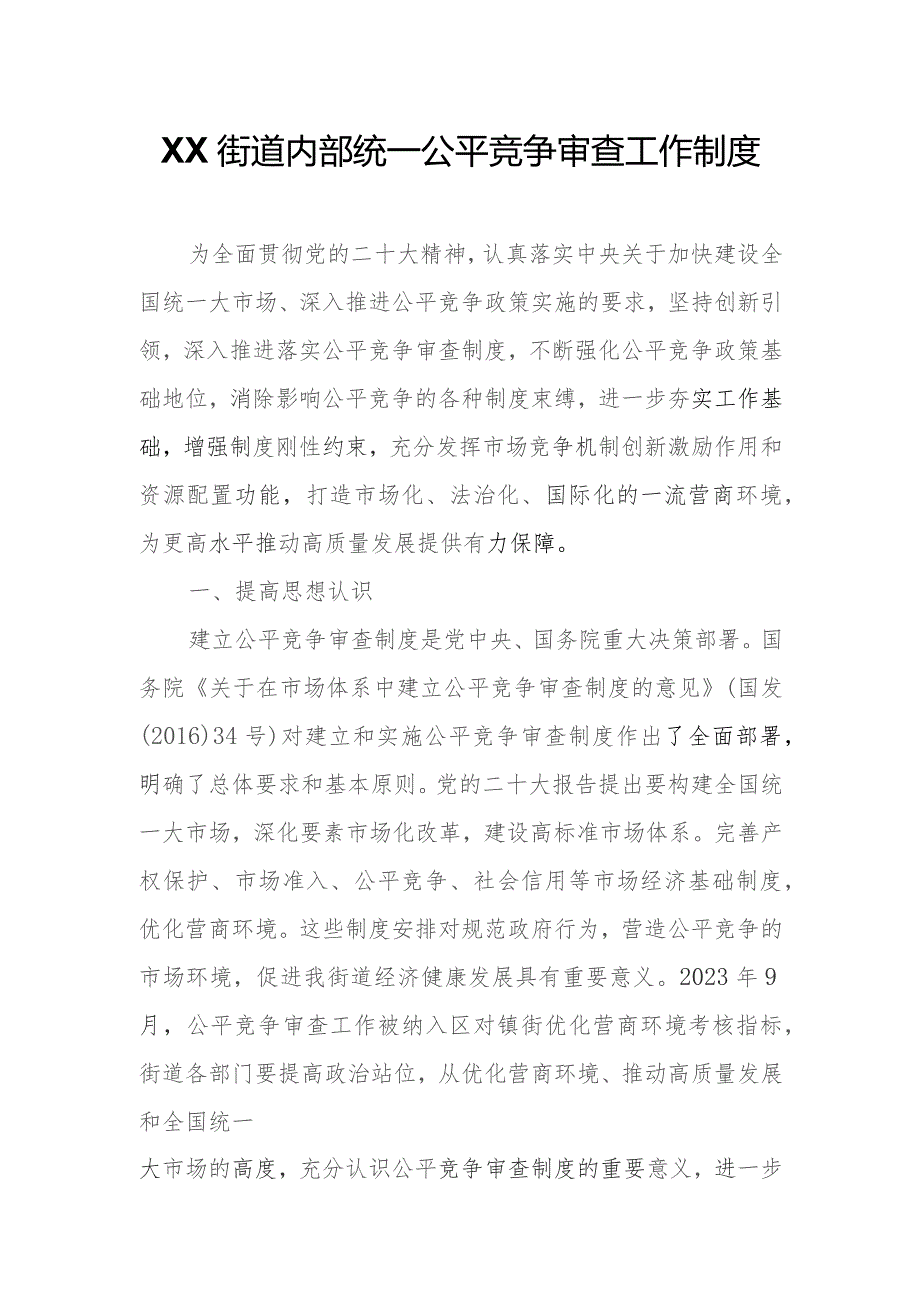 XX 街道内部统一公平竞争审查工作制度
为全面贯彻党的二十大精神，认真落实中央关于加快建设全
国统一大市场、深入推进公平竞争政策实施的要求，坚持创新引
领，深入推进落实公平竞争审查制度，不断强化公平竞争政策基
础地位，消除影响公平竞争的各种制度束缚，进一步夯实工作基
础，增强制度刚性约束，充分发挥市场竞争机制创新激励作用和
资源配置功能，打造市场化、法治化、国际化的一流营商环境，
为更高水平推动高质量发展提供有力保障。
一、提高思想认识
建立公平竞争审查制度是党中央、国务院重大决策部署。国
务院《关于在市场体系中建立公平竞争审查制度的意见》(国发
(2016)34 号)对建立和实施公平竞争审查制度作出了全面部署，
明确了总体要求和基本原则。党的二十大报告提出要构建全国统
一大市场，深化要素市场化改革，建设高标准市场体系。完善产
权保护、市场准入、公平竞争、社会信用等市场经济基础制度，
优化营商环境。这些制度安排对规范政府行为，营造公平竞争的
市场环境，促进我街道经济健康发展具有重要意义。2023 年 9
月，公平竞争审查工作被纳入区对镇街优化营商环境考核指标，
街道各部门要提高政治站位，从优化营商环境、推动高质量发展
和全国统一
大市场的高度，充分认识公平竞争审查制度的重要意义，进一步